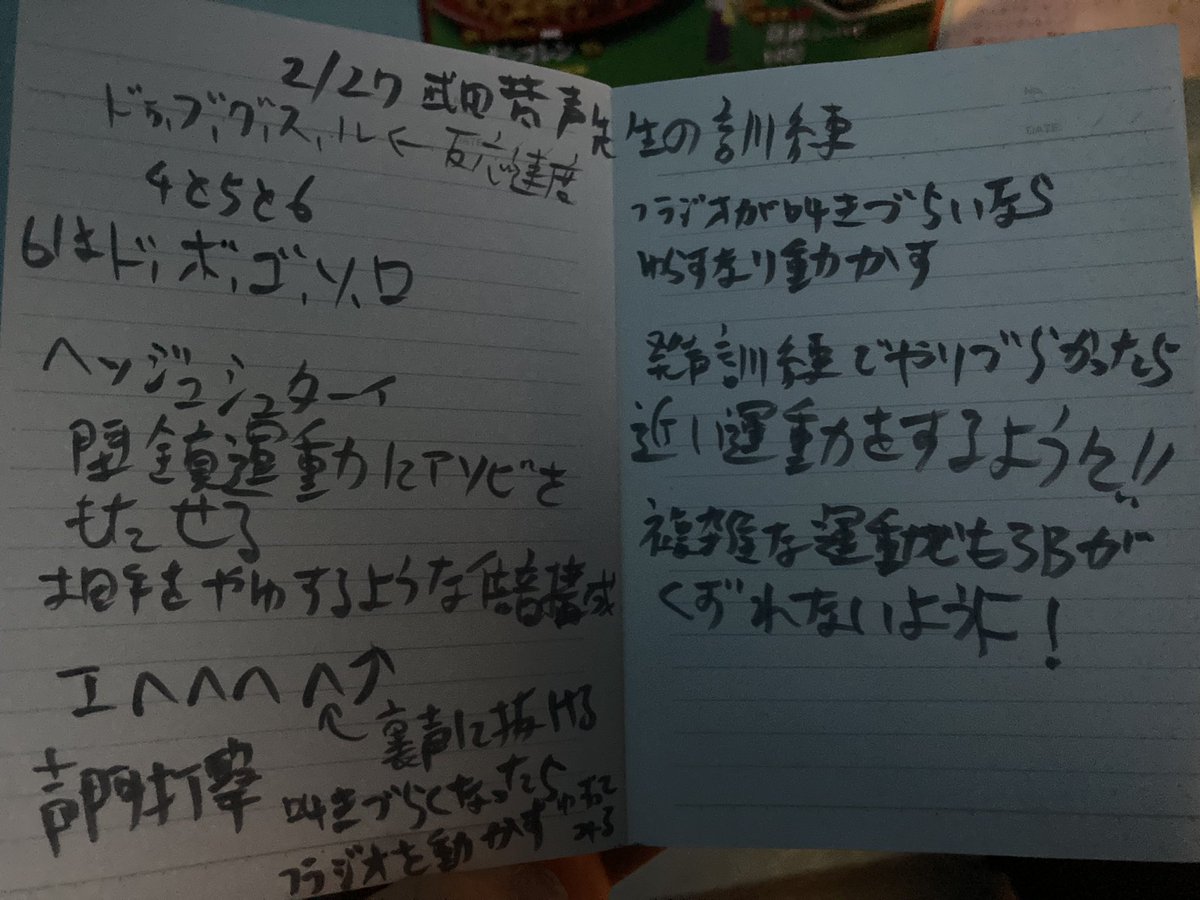 2/27 武田梵声先生の訓練
ド,ブ,グ,ス,ル←反応速度
4と5と6
6はド,ボ,ゴ,ソ,ロ
ヘッジュシュターイ
閉鎖運動にアソビを
もたせる
相手をやゆするような倍音構成
エへへへへ↑
裏声に抜ける
声門打撃
叩きづらくなったら
ゆすってみる
フラジオを動かす
フラジオが叩きづらいなら
ゆらすなり動かす
発声訓練でやりづらかったら
近い運動をするように!!
複雑な運動でも3Bが
くずれないように!
NO.
DATE